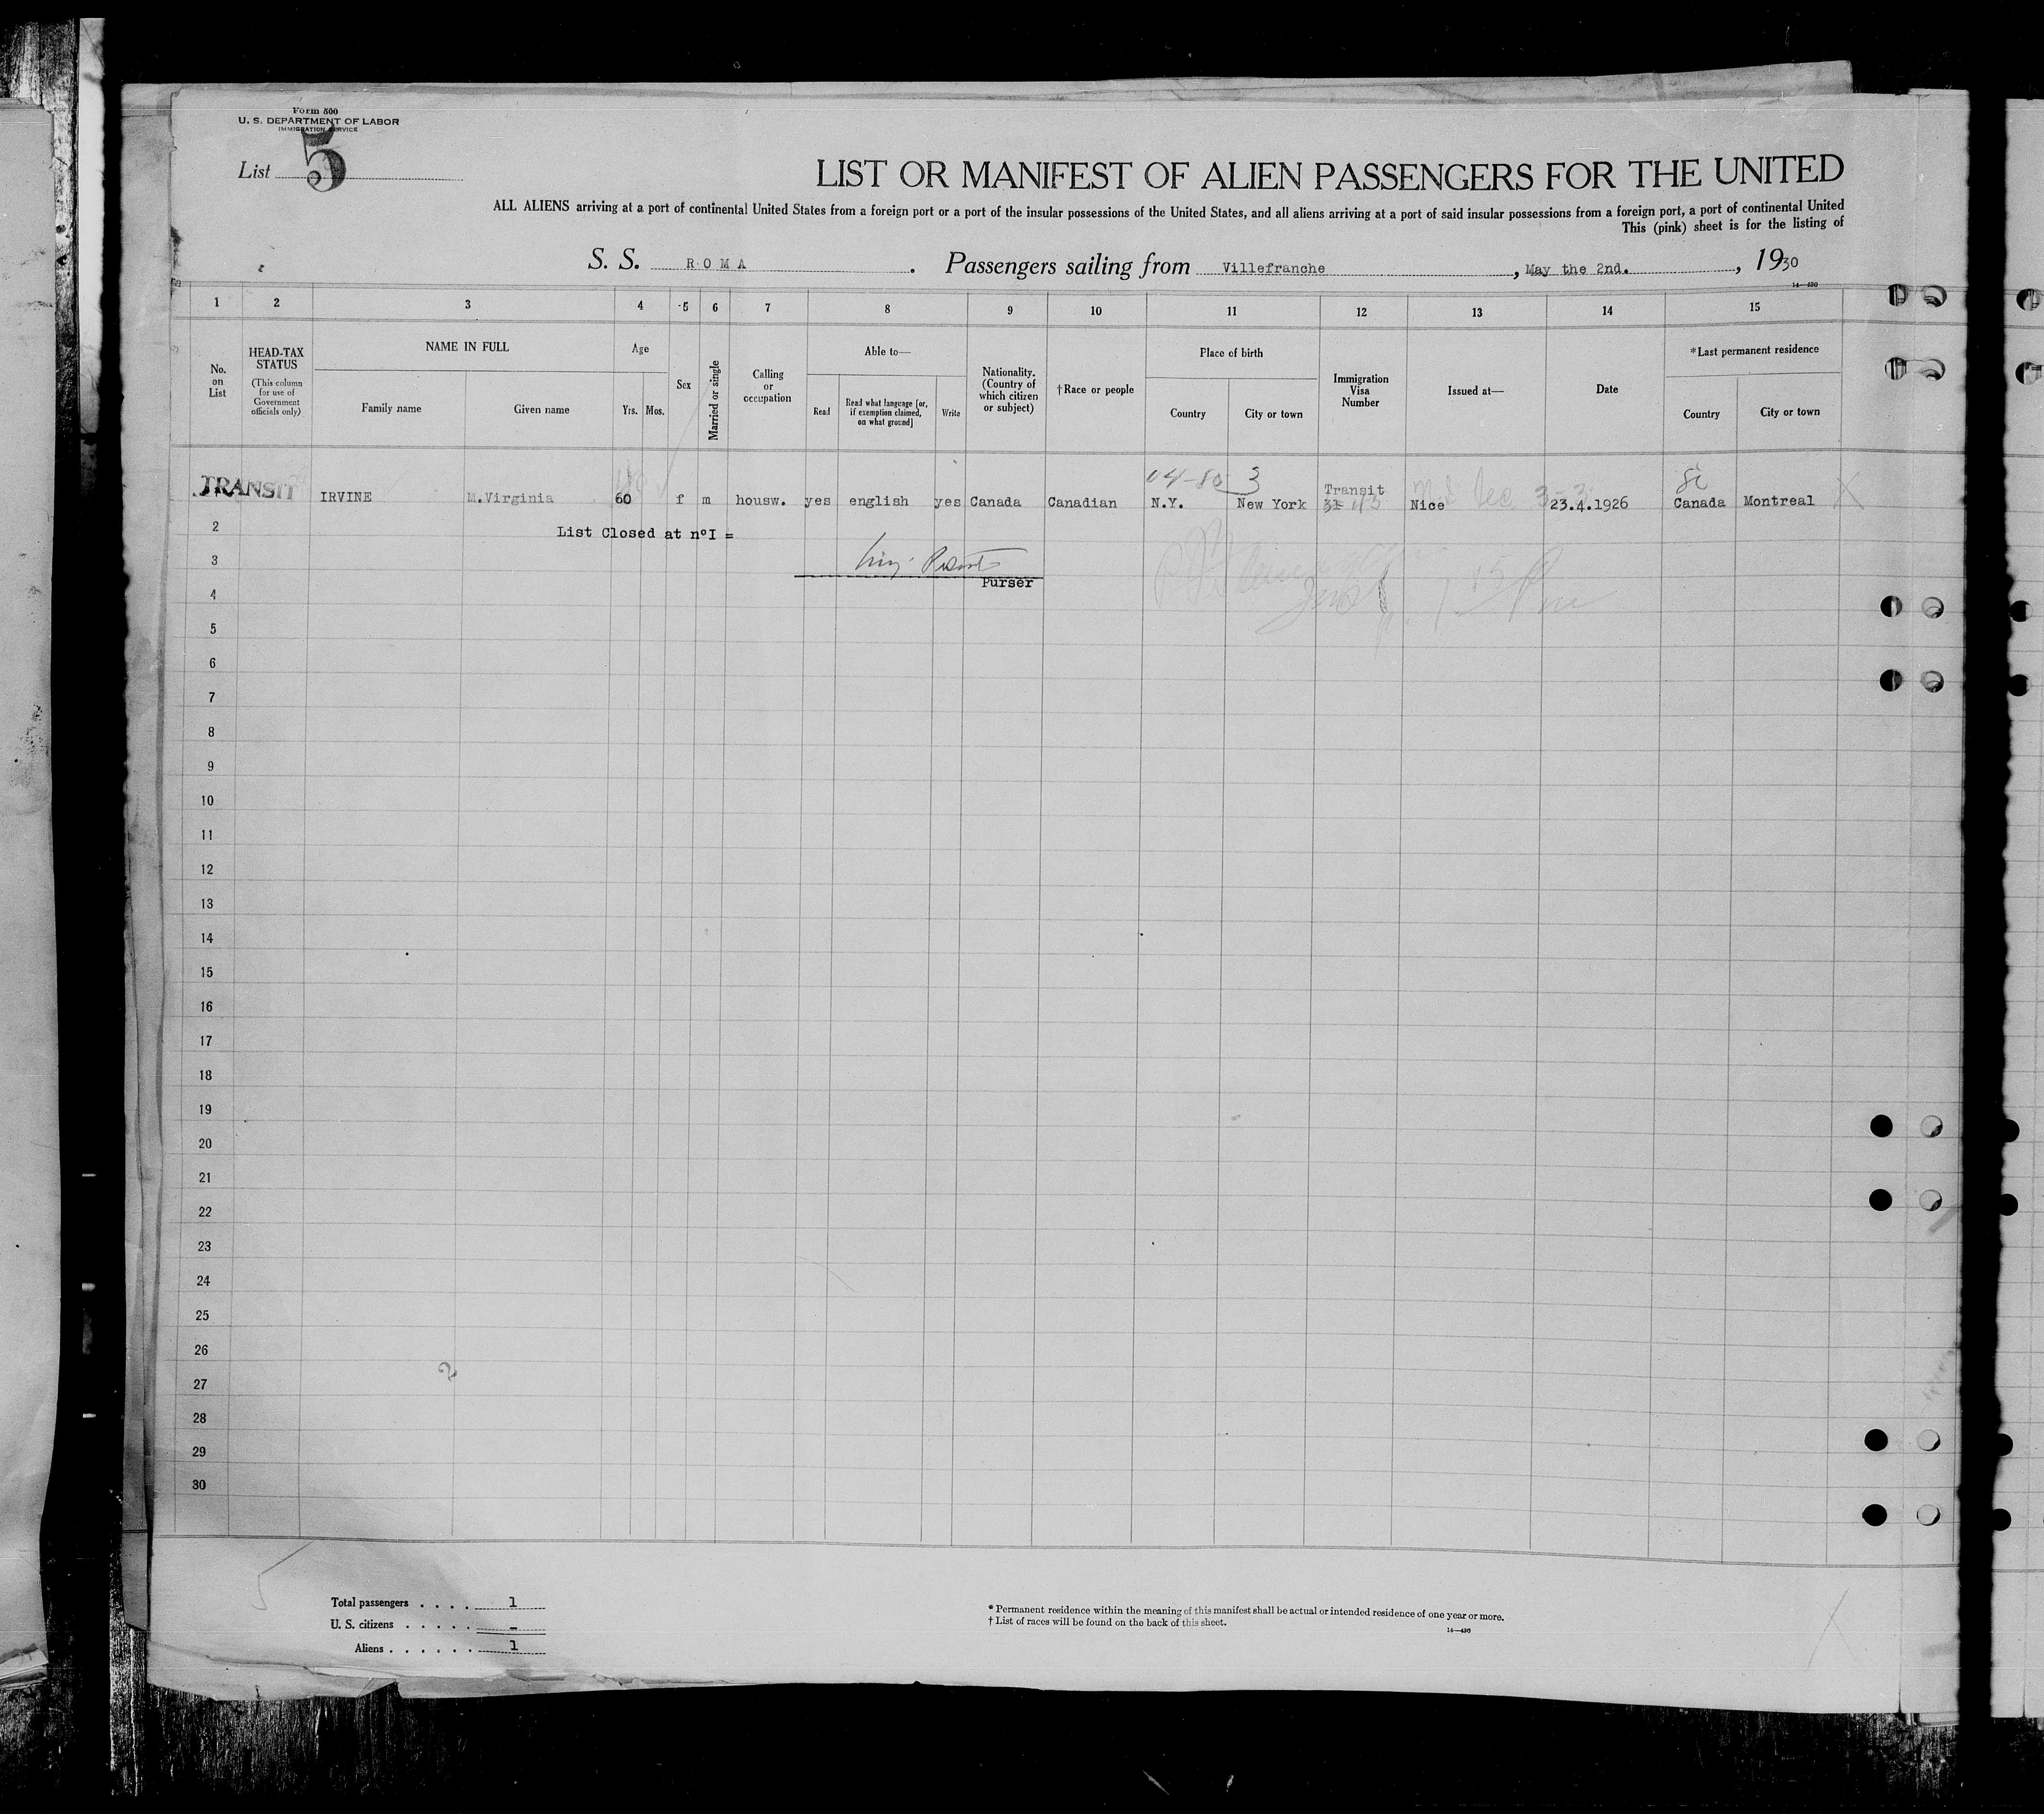 Form 500
U. S. DEPARTMENT OF LABOR
IMMIGRATION SERVICE
List 5
LIST OR MANIFEST OF ALIEN PASSENGERS FOR THE UNITED
ALL ALIENS arriving at a port of continental United States from a foreign port or a port of the insular possessions of the United States, and all aliens arriving at a port of said insular possessions from a foreign port, a port of continental United
This (pink) sheet is for the listing of
S. S. ROMA. Passengers sailing from Villefranche, May the 2nd., 1930
14—430
1 2 3 4 5 6 7 8 9 10 11 12 13 14 15
No. on List
HEAD-TAX STATUS (This column for use of Government officials only)
NAME IN FULL
Family name Given name
Age
Yrs. Mos.
Sex
Married or single
Calling or occupation
Able to—
Read
Read what language [or, if exemption claimed, on what ground]
Write
Nationality. (Country of which citizen or subject)
†Race or people
Place of birth
Country City or town
Immigration Visa Number
Issued at—
Date
*Last permanent residence
Country City or town
04-80 3
TRANSIT IRVINE M.Virginia 60 f m housw. yes english yes Canada Canadian N.Y. New York Transit Nice 23.4.1926 Canada Montreal
2 List Closed at nºI =
3
Purser
4
5
6
7
8
9
10
11
12
13
14
15
16
17
18
19
20
21
22
23
24
25
26
27
28
29
30
Total passengers . . . . 1
U. S. citizens . . . . . -
Aliens . . . . . . 1
* Permanent residence within the meaning of this manifest shall be actual or intended residence of one year or more.
† List of races will be found on the back of this sheet.
14—430